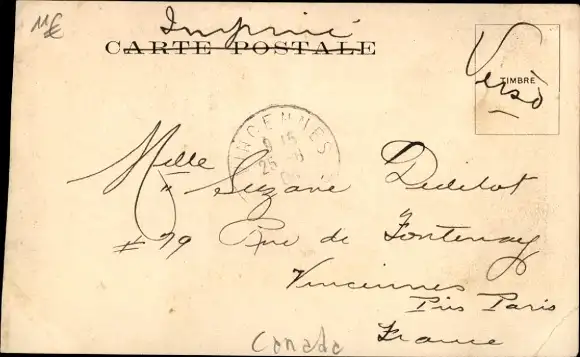 11€
Imprimé
CARTE POSTALE
Verso
TIMBRE
VINCENNES
Mlle
" Suzane Didelot
#79 Rue de Fontenay
Vincennes
Près Paris
France
Canada